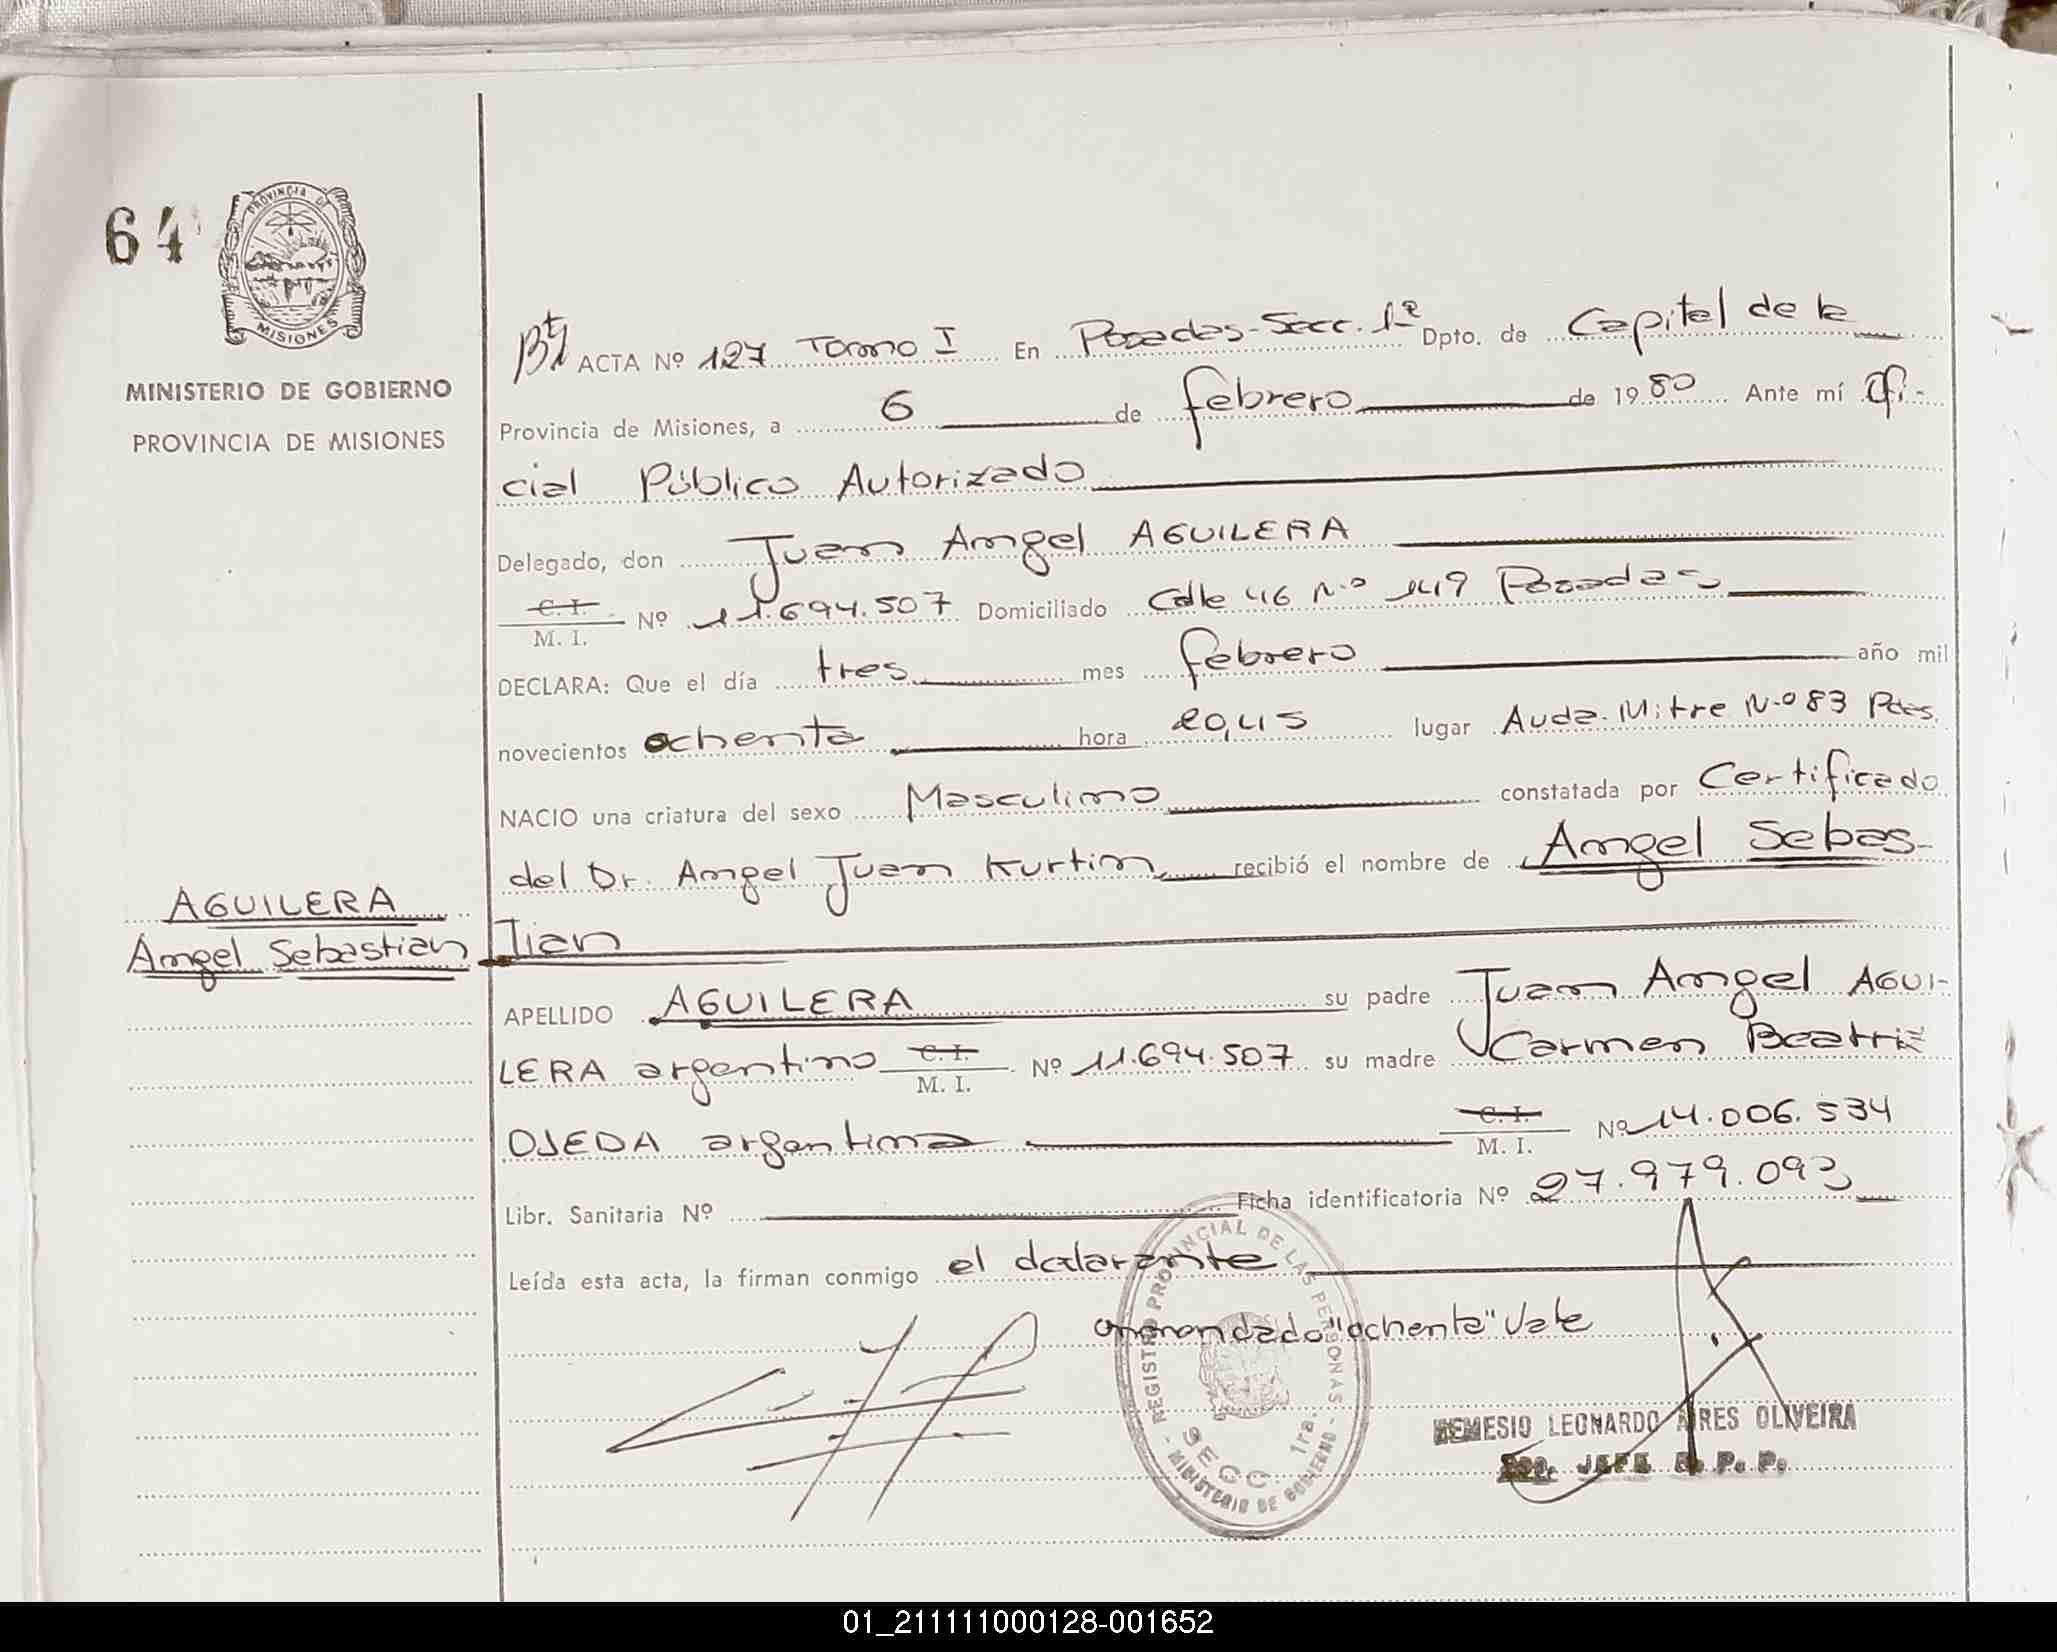 64
PROVINCIA DE
MISIONES
MINISTERIO DE GOBIERNO
PROVINCIA DE MISIONES
ACTA Nº 127 Tomo I En Posadas-Secc. 1ª Dpto. de Capital de la
Provincia de Misiones, a 6 de febrero de 1980 Ante mí Ofi-
cial Público Autorizado
Delegado, don Juan Angel AGUILERA
C. I.
M. I. Nº 11.694.507 Domiciliado Calle 46 Nº 149 Posadas
DECLARA: Que el día tres mes febrero año mil
novecientos ochenta hora 20,45 lugar Avda. Mitre Nº 83 Pdas.
NACIO una criatura del sexo Masculino constatada por Certificado
del Dr. Angel Juan Kurtin recibió el nombre de Angel Sebas-
AGUILERA
Angel Sebastian
Tian
APELLIDO AGUILERA su padre Juan Angel AGUI-
LERA argentino C. I. M. I. Nº 11.694.507 su madre Carmen Beatriz
OJEDA argentina C. I. M. I. Nº 14.006.534
Libr. Sanitaria Nº Ficha identificatoria Nº 27.979.093
Leída esta acta, la firman conmigo el declarante
enmendado "ochenta" Vale
REGISTRO PROVINCIAL DE LAS PERSONAS
SECC. 1ra.
- MINISTERIO DE GOBIERNO -
NEMESIO LEONARDO AIRES OLIVEIRA
JEFE R. P. P.
01_211111000128-001652